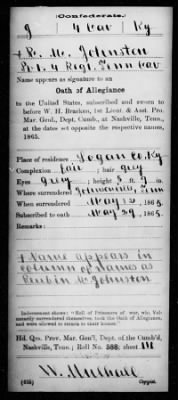 (Confederate.)
J 4 Cav Ky
+ R. M. Johnston
Pvt. 4 Regt. Tenn Cav
Name appears as signature to an
Oath of Allegiance
to the United States, subscribed and sworn to
before W. H. Bracken, 1st Lieut. & Asst. Pro.
Mar. Genl., Dept. Cumb., at Nashville, Tenn.,
at the dates set opposite the respective names,
1865.
Place of residence Logan Co. Ky
Complexion fair ; hair grey
Eyes grey ; height 5 ft. in.
Where surrendered Tenn
When surrendered May 1865.
Subscribed to oath May 29, 1865.
Remarks:
+ Name appears in
column of Names as
Reubin M. Johnston
Indorsement shows: "Roll of Prisoners of war, who voluntarily
surrendered themselves, took the Oath of Allegiance,
and were allowed to return to their homes."
Hd. Qrs. Prov. Mar. Genl., Dept. of the Cumb'd,
Nashville, Tenn.; Roll No. sheet 111
Copyist.